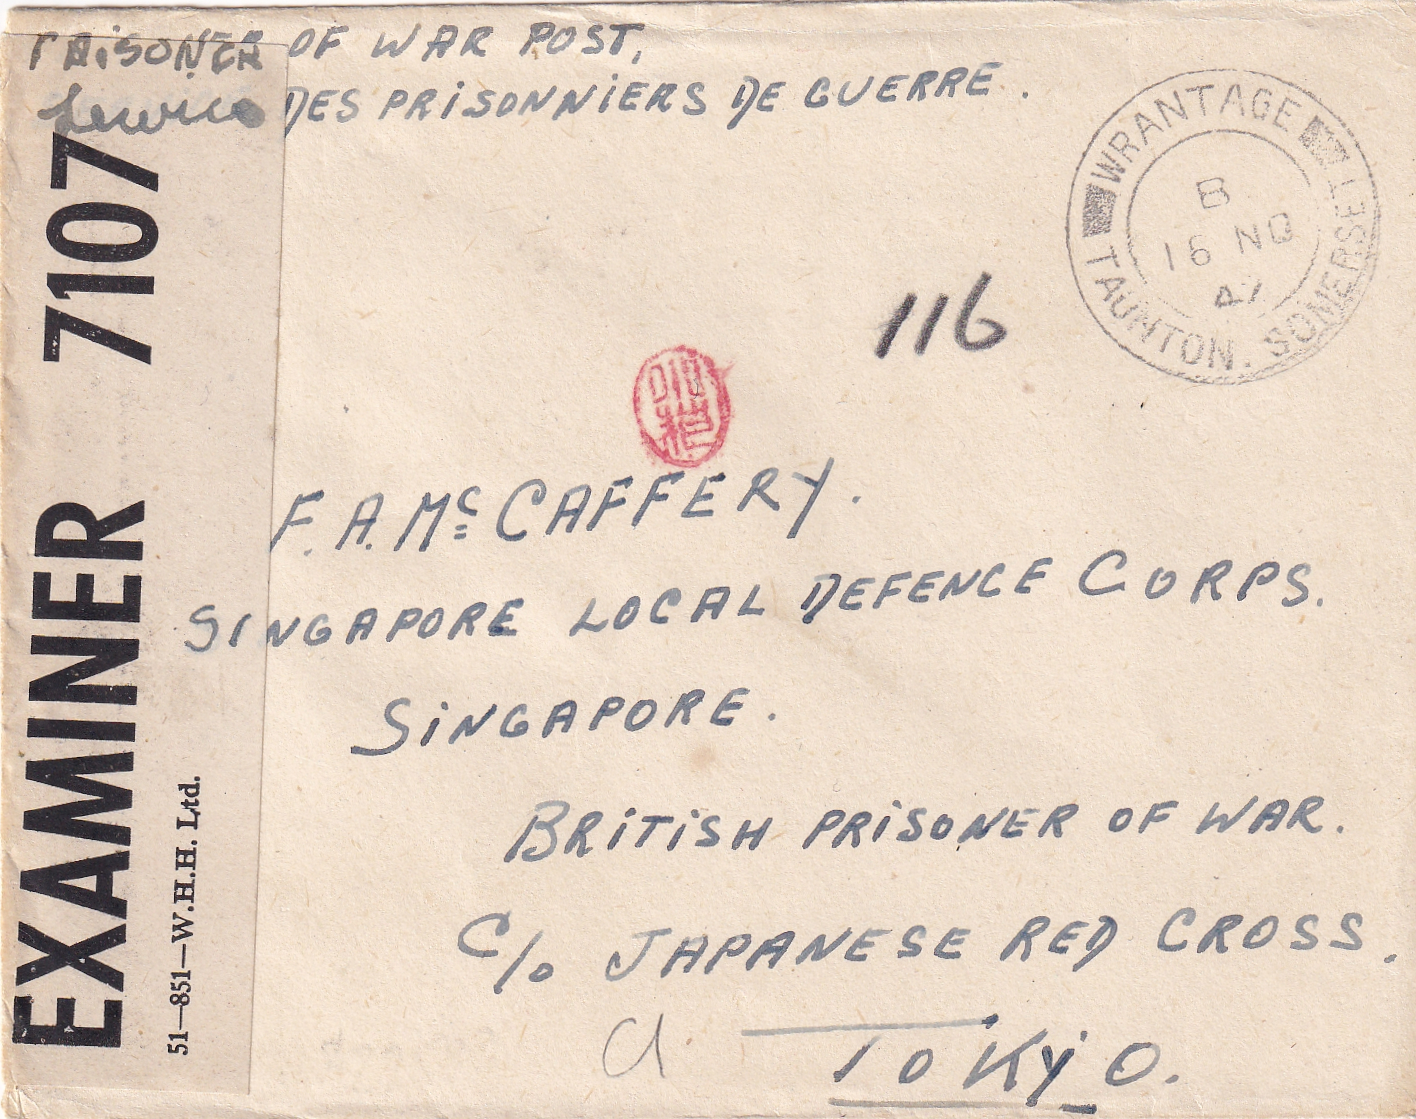 PRISONER OF WAR POST,
Service DES PRISONNIERS DE GUERRE.
WRANTAGE
TAUNTON. SOMERSET
B
16 NO
116
F. A. Mc CAFFERY.
SINGAPORE LOCAL DEFENCE CORPS.
SINGAPORE.
BRITISH PRISONER OF WAR.
C/o JAPANESE RED CROSS.
TOKYO.
EXAMINER 7107
51—851—W.H.H. Ltd.